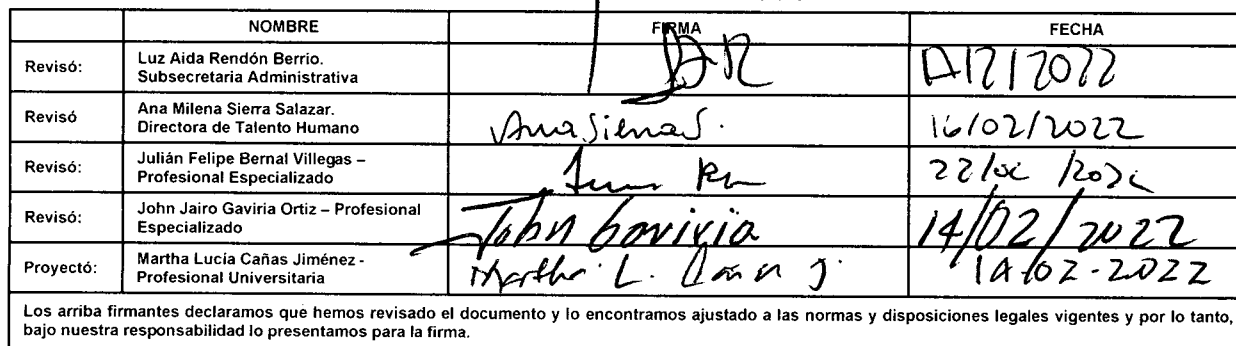 NOMBRE FIRMA FECHA
Revisó: Luz Aida Rendón Berrio.
Subsecretaria Administrativa
Revisó Ana Milena Sierra Salazar.
Directora de Talento Humano
AnaSierraS. 16/02/2022
Revisó: Julián Felipe Bernal Villegas –
Profesional Especializado
Revisó: John Jairo Gaviria Ortiz – Profesional
Especializado
John Gaviria 14/02/2022
Proyectó: Martha Lucía Cañas Jiménez -
Profesional Universitaria
Martha L. Cañas J.
Los arriba firmantes declaramos que hemos revisado el documento y lo encontramos ajustado a las normas y disposiciones legales vigentes y por lo tanto,
bajo nuestra responsabilidad lo presentamos para la firma.